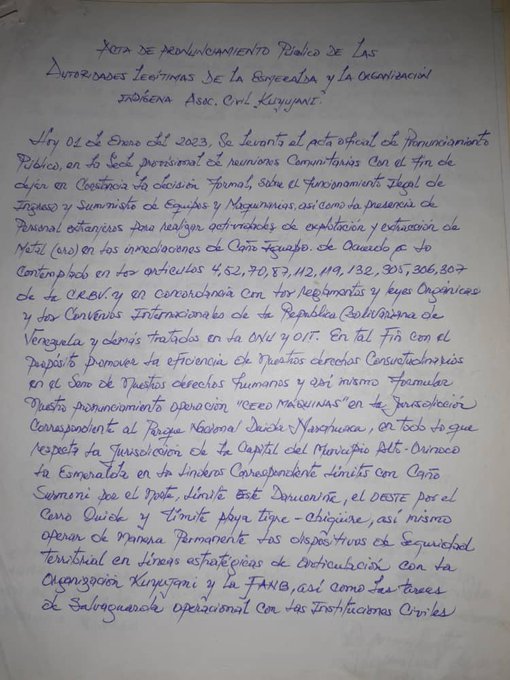 Acta de pronunciamiento Público de las
Autoridades legítimas de la Esmeralda y la organización
indígena Asoc. Civil Kuyujani.
Hoy 01 de Enero del 2023, Se levanta el acta oficial de Pronunciamiento
Público, en la Sede provisional de reuniones Comunitarias con el fin de
dejar en Constancia la decisión formal, sobre el funcionamiento Ilegal de
Ingreso y Suministro de Equipos y Maquinarias, así como la presencia de
Personal extranjeros para realizar actividades de explotación y extracción de
Metal (oro) en las inmediaciones de Caño Iguapo. de Acuerdo a lo
Contemplado en los articulos 4, 52, 70, 87, 112, 119, 132, 305, 306, 307
de la C.R.B.V. y en concordancia con los reglamentos y leyes Orgánicas
y los Convenios Internacionales de la Republica Bolivariana de
Venezuela y demás tratados en la ONU y OIT. En tal Fin con el
propósito promover la eficiencia de Nuestros derechos Consuetudinarios
en el Seno de Nuestros derechos humanos y así mismo formular
Nuestro pronunciamiento operación "CERO MÁQUINAS" en la Jurisdicción
Correspondiente al Parque Nacional Duida Marahuaca, en todo lo que
respecta la Jurisdicción de la Capital del Municipio Alto-Orinoco
la Esmeralda en los linderos Correspondiente límites con Caño
Surmoni por el Norte, límite Este, el OESTE por el
Cerro Duida y límite playa tigre-chigüire, así mismo
operar de Manera Permanente los dispositivos de Seguridad
territorial en líneas estratégicas de articulación con la
Organización Kuyujani y la FANB, así como las tareas
de Salvaguarda operacional con las Instituciones Civiles